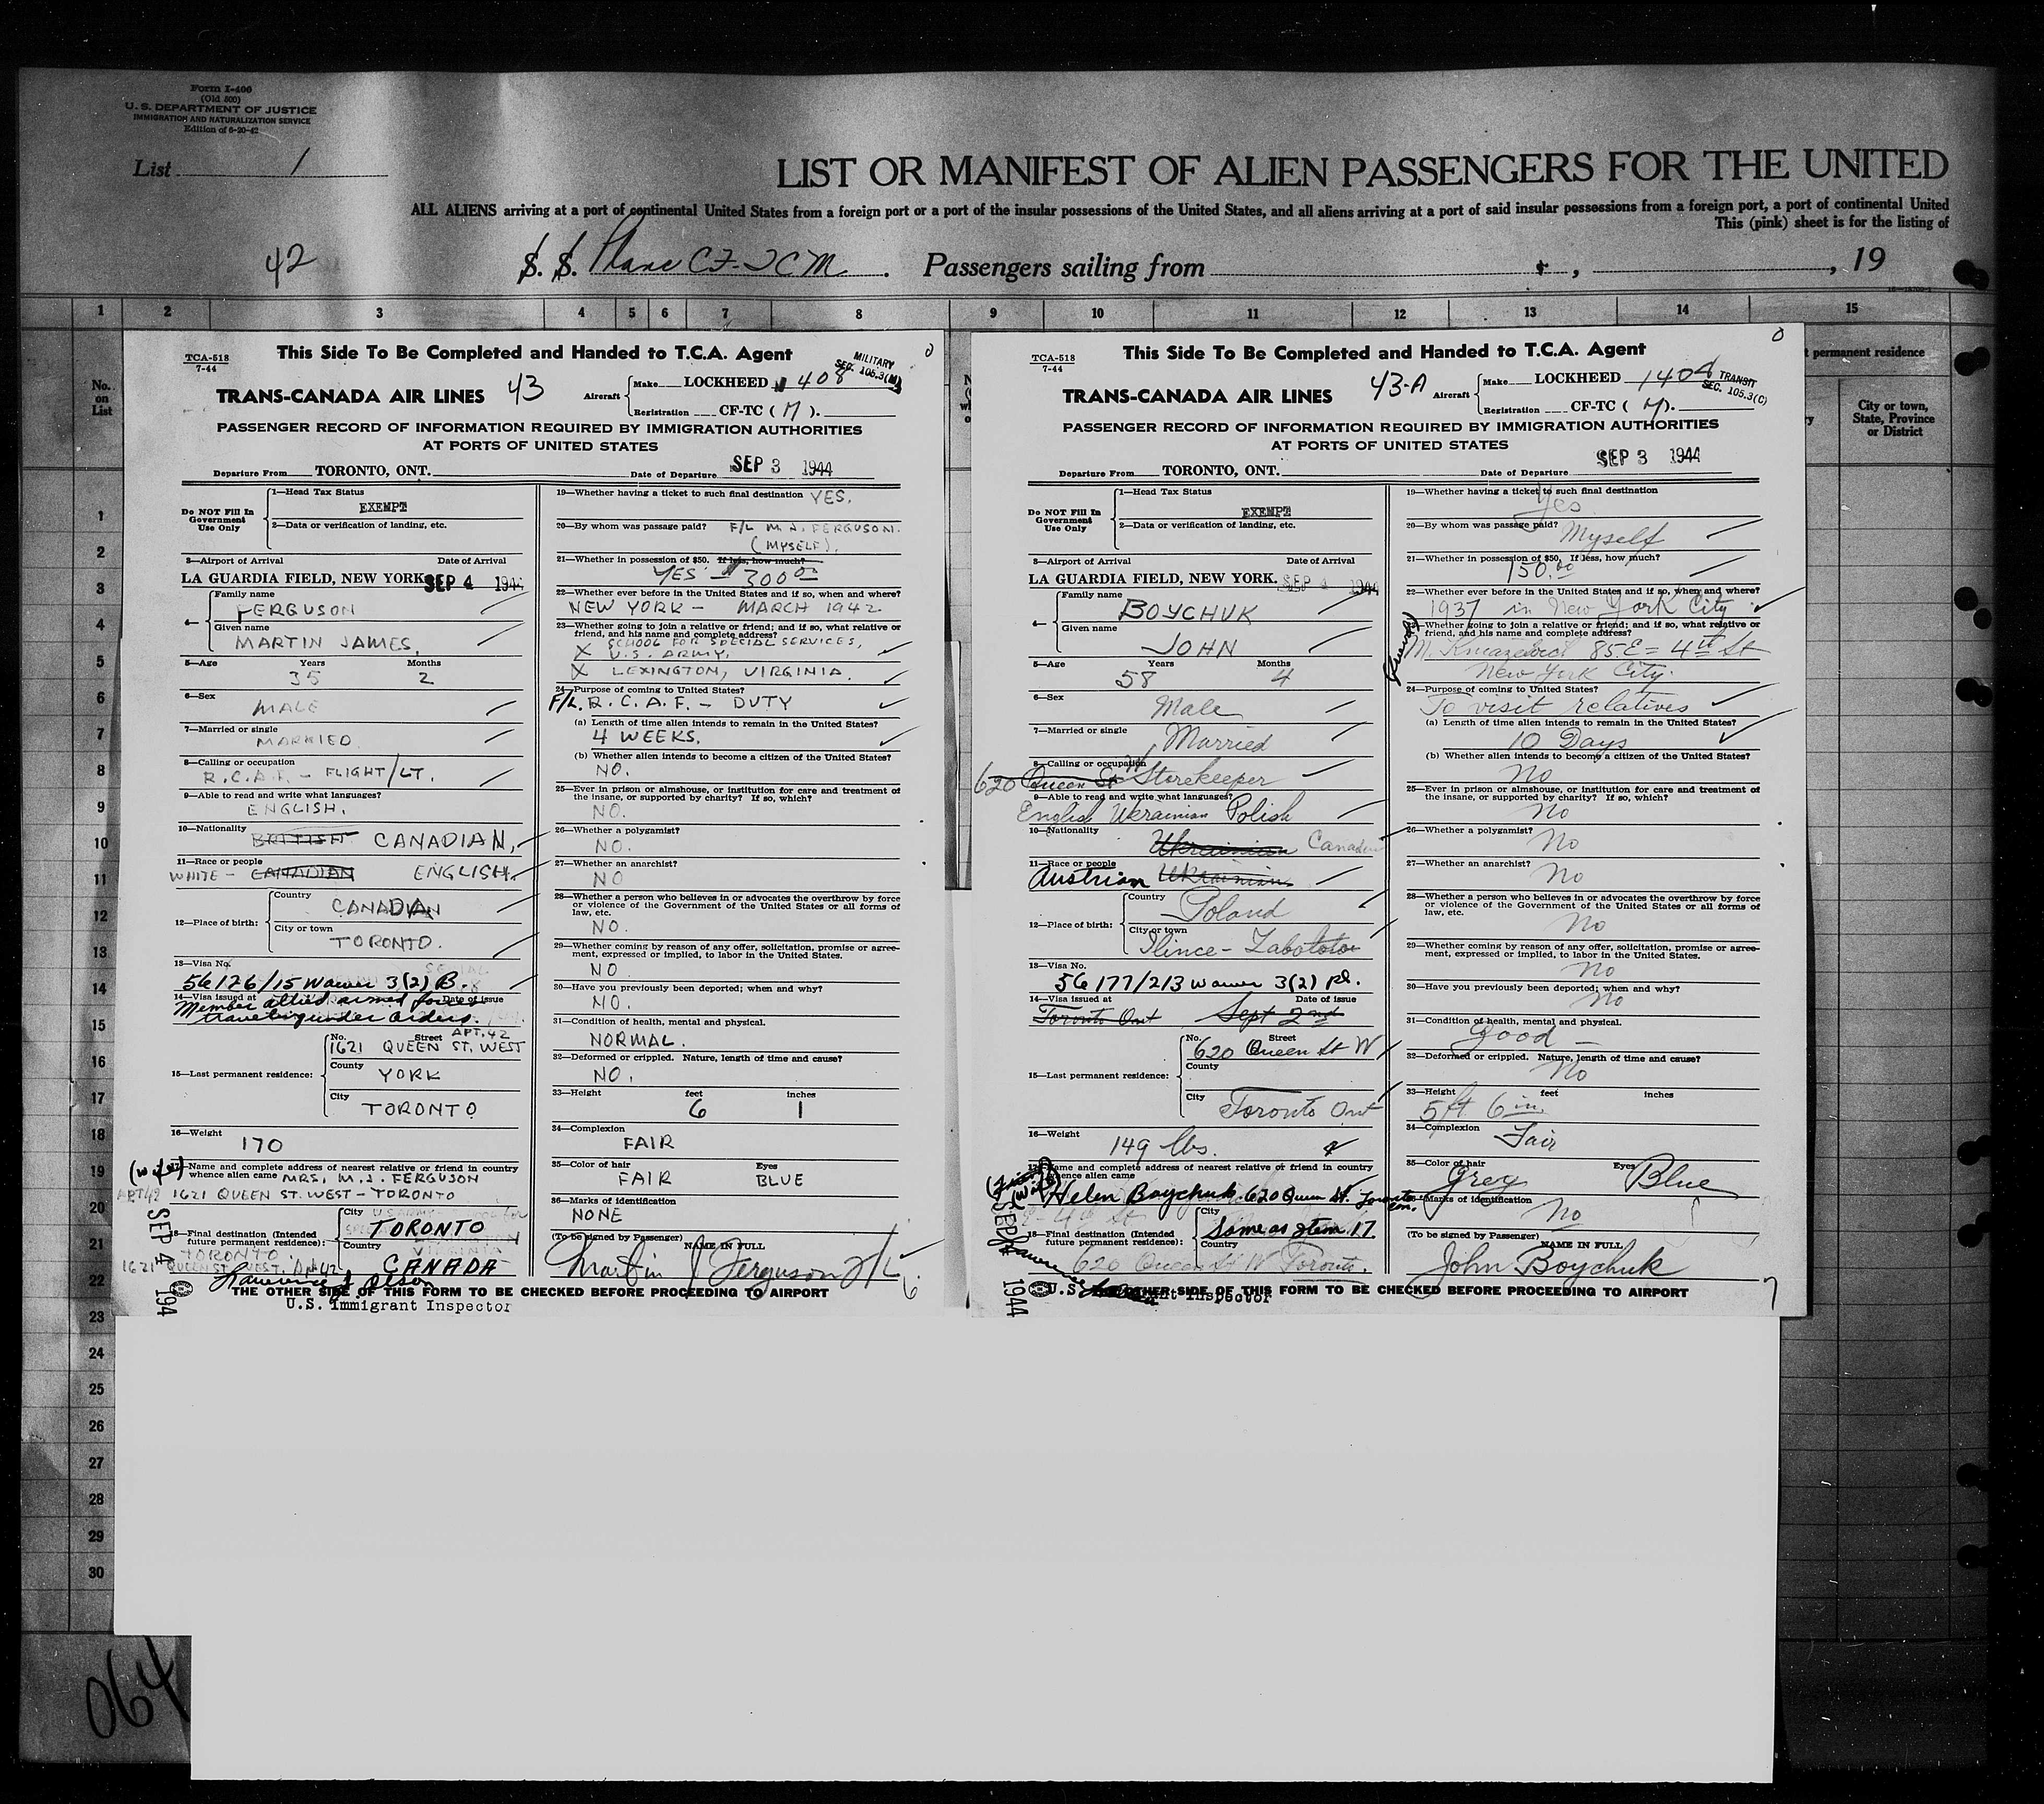 Form I-400
(Old 500)
U. S. DEPARTMENT OF JUSTICE
IMMIGRATION AND NATURALIZATION SERVICE
Edition of 6-20-42
List 1
LIST OR MANIFEST OF ALIEN PASSENGERS FOR THE UNITED
ALL ALIENS arriving at a port of continental United States from a foreign port or a port of the insular possessions of the United States, and all aliens arriving at a port of said insular possessions from a foreign port, a port of continental United
This (pink) sheet is for the listing of
42 S. S. Plane CF-TCM. Passengers sailing from , , 19
1 2 3 4 5 6 7 8 9 10 11 12 13 14 15
No. on List
permanent residence
City or town, State, Province or District
1
2
3
4
5
6
7
8
9
10
11
12
13
14
15
16
17
18
19
20
21
22
23
24
25
26
27
28
29
30
064
TCA-518
7-44
This Side To Be Completed and Handed to T.C.A. Agent
MILITARY
SEC. 105.3(M)
TRANS-CANADA AIR LINES 43
Aircraft
Make LOCKHEED 1408
Registration CF-TC ( M ).
PASSENGER RECORD OF INFORMATION REQUIRED BY IMMIGRATION AUTHORITIES
AT PORTS OF UNITED STATES
Departure From TORONTO, ONT. Date of Departure SEP 3 1944
Do NOT Fill In
Government
Use Only
1—Head Tax Status
EXEMPT
2—Data or verification of landing, etc.
3—Airport of Arrival Date of Arrival
LA GUARDIA FIELD, NEW YORK. SEP 4 1944
4—
Family name
FERGUSON
Given name
MARTIN JAMES.
5—Age Years Months
35 2
6—Sex
MALE
7—Married or single
MARRIED
8—Calling or occupation
R.C.A.F. - FLIGHT/LT.
9—Able to read and write what languages?
ENGLISH.
10—Nationality
BRITISH CANADIAN,
11—Race or people
WHITE - CANADIAN ENGLISH.
12—Place of birth:
Country
CANADIAN
City or town
TORONTO.
13—Visa No.
56126/15 Waiver 3(2) B.
14—Visa issued at Date of issue
Member allied armed forces
traveling under orders.
15—Last permanent residence:
No. Street
APT. 42
1621 QUEEN ST. WEST
County
YORK
City
TORONTO
16—Weight
170
(wife)
17—Name and complete address of nearest relative or friend in country
whence alien came MRS. M. J. FERGUSON
APT 42 1621 QUEEN ST. WEST - TORONTO
18—Final destination (Intended
future permanent residence):
City
TORONTO
Country
CANADA
TORONTO.
1621 QUEEN ST. WEST. Apt 42
SEP 4 194
Lawrence J Olson
THE OTHER SIDE OF THIS FORM TO BE CHECKED BEFORE PROCEEDING TO AIRPORT
U.S. Immigrant Inspector
19—Whether having a ticket to such final destination YES.
20—By whom was passage paid? F/L M. J. FERGUSON.
(MYSELF).
21—Whether in possession of $50. If less, how much?
YES - $300 00
22—Whether ever before in the United States and if so, when and where?
NEW YORK - MARCH 1942
23—Whether going to join a relative or friend; and if so, what relative or
friend, and his name and complete address?
SCHOOL FOR SPECIAL SERVICES,
X U.S. ARMY,
X LEXINGTON, VIRGINIA.
24—Purpose of coming to United States?
F/L. R.C.A.F. - DUTY
(a) Length of time alien intends to remain in the United States?
4 WEEKS.
(b) Whether alien intends to become a citizen of the United States?
NO.
25—Ever in prison or almshouse, or institution for care and treatment of
the insane, or supported by charity? If so, which?
NO.
26—Whether a polygamist?
NO.
27—Whether an anarchist?
NO
28—Whether a person who believes in or advocates the overthrow by force
or violence of the Government of the United States or all forms of
law, etc.
NO.
29—Whether coming by reason of any offer, solicitation, promise or agree-
ment, expressed or implied, to labor in the United States.
NO
30—Have you previously been deported; when and why?
NO.
31—Condition of health, mental and physical.
NORMAL.
32—Deformed or crippled. Nature, length of time and cause?
NO.
33—Height feet inches
6 1
34—Complexion
FAIR
35—Color of hair Eyes
FAIR BLUE
36—Marks of identification
NONE
(To be signed by Passenger) NAME IN FULL
Martin J Ferguson F/L
6
TCA-518
7-44
This Side To Be Completed and Handed to T.C.A. Agent
TRANSIT
SEC. 105.3(C)
TRANS-CANADA AIR LINES 43-A
Aircraft
Make LOCKHEED 1408
Registration CF-TC ( M ).
PASSENGER RECORD OF INFORMATION REQUIRED BY IMMIGRATION AUTHORITIES
AT PORTS OF UNITED STATES
Departure From TORONTO, ONT. Date of Departure SEP 3 1944
Do NOT Fill In
Government
Use Only
1—Head Tax Status
EXEMPT
2—Data or verification of landing, etc.
3—Airport of Arrival Date of Arrival
LA GUARDIA FIELD, NEW YORK. SEP 4 1944
4—
Family name
BOYCHUK
Given name
JOHN
5—Age Years Months
58 4
6—Sex
Male
7—Married or single
Married
8—Calling or occupation
620 Queen St Storekeeper
9—Able to read and write what languages?
English Ukrainian Polish
10—Nationality
Ukrainian Canadian
11—Race or people
Austrian Ukrainian
12—Place of birth:
Country
Poland
City or town
Ilince - Zabolotow
13—Visa No.
56177/213 Waiver 3(2) Rd.
14—Visa issued at Date of issue
Toronto Ont Sept 2nd
15—Last permanent residence:
No. Street
620 Queen St W
County
City
Toronto Ont
16—Weight
149 lbs.
17—Name and complete address of nearest relative or friend in country
whence alien came
(wife)
Helen Boychuk. 620 Queen St. Toronto
18—Final destination (Intended
future permanent residence):
City
Same as item 17
Country
620 Queen St W Toronto.
SEP 4 1944
U.S. Immigrant Inspector
THE OTHER SIDE OF THIS FORM TO BE CHECKED BEFORE PROCEEDING TO AIRPORT
19—Whether having a ticket to such final destination
Yes
20—By whom was passage paid?
Myself
21—Whether in possession of $50. If less, how much?
150.00
22—Whether ever before in the United States and if so, when and where?
1937 in New York City
23—Whether going to join a relative or friend; and if so, what relative or
friend, and his name and complete address?
(friend)
85 E = 4th St
New York City.
24—Purpose of coming to United States?
To visit relatives
(a) Length of time alien intends to remain in the United States?
10 Days
(b) Whether alien intends to become a citizen of the United States?
No
25—Ever in prison or almshouse, or institution for care and treatment of
the insane, or supported by charity? If so, which?
No
26—Whether a polygamist?
No
27—Whether an anarchist?
No
28—Whether a person who believes in or advocates the overthrow by force
or violence of the Government of the United States or all forms of
law, etc.
No
29—Whether coming by reason of any offer, solicitation, promise or agree-
ment, expressed or implied, to labor in the United States.
No
30—Have you previously been deported; when and why?
No
31—Condition of health, mental and physical.
Good -
32—Deformed or crippled. Nature, length of time and cause?
No
33—Height feet inches
5 ft 6 in.
34—Complexion
Fair
35—Color of hair Eyes
Grey Blue
36—Marks of identification
No
(To be signed by Passenger) NAME IN FULL
John Boychuk
7